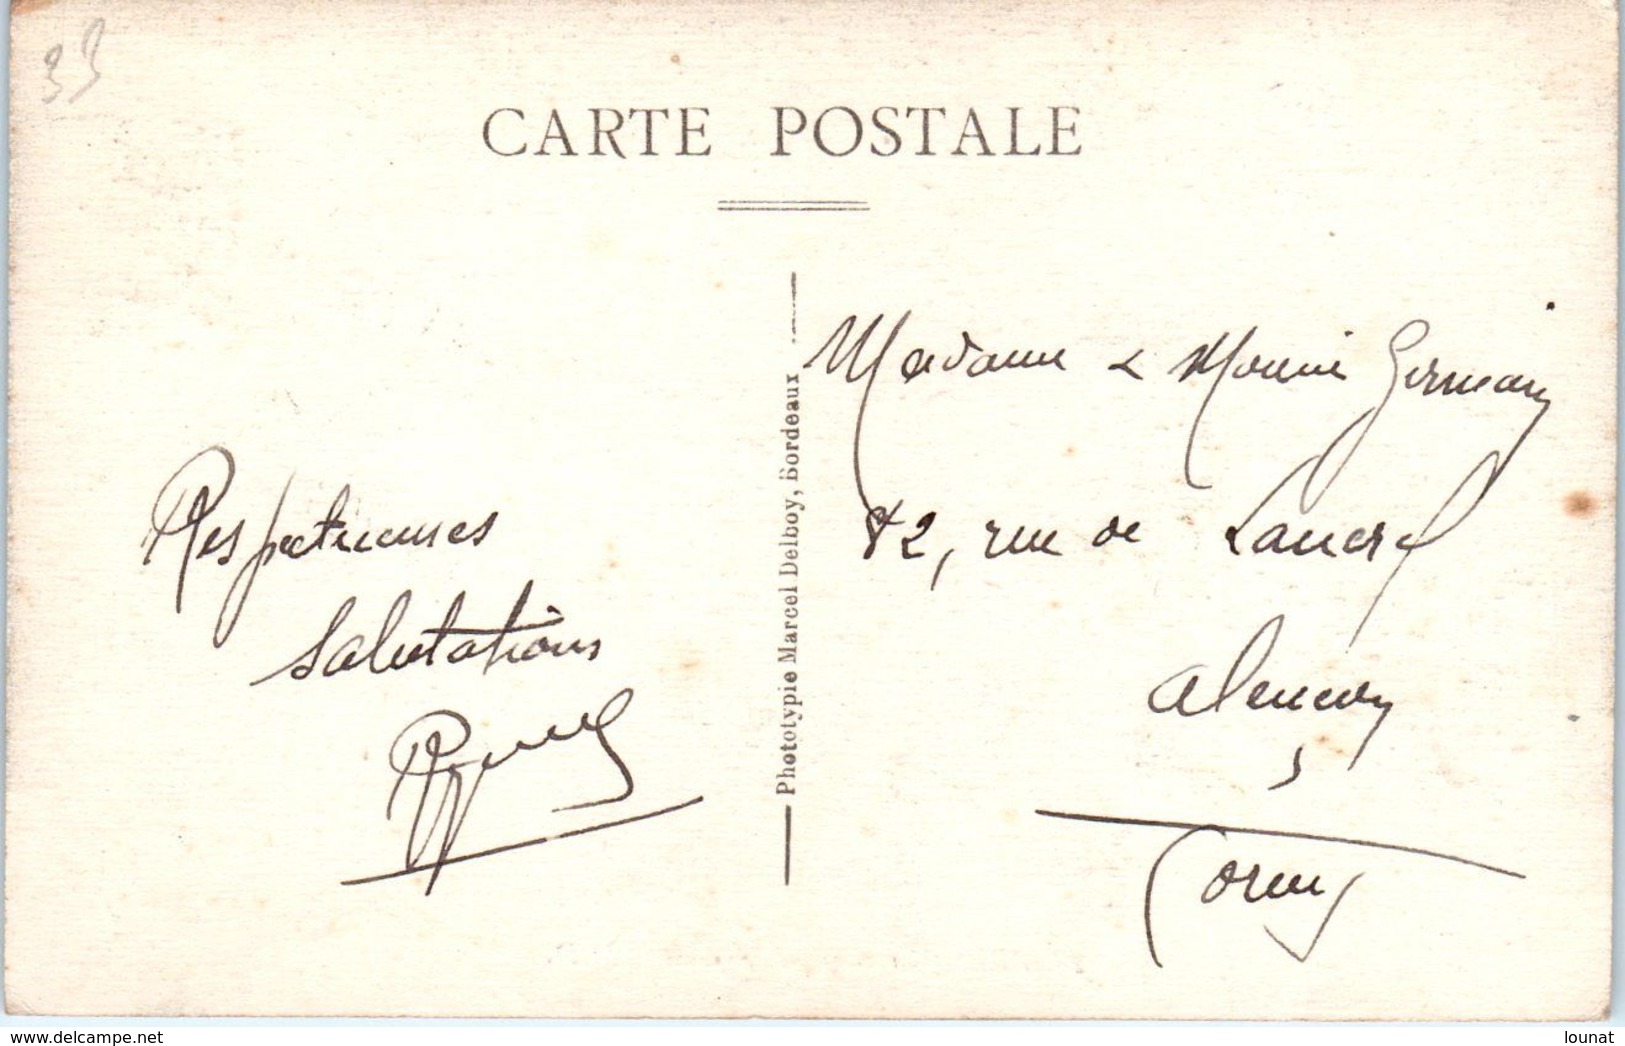 33
CARTE POSTALE
Respectueuses
salutations
Madame & Germain
82, rue de Lancrel
Alençon
(Orne)
Phototypie Marcel Delboy, Bordeaux
www.delcampe.net
lounat